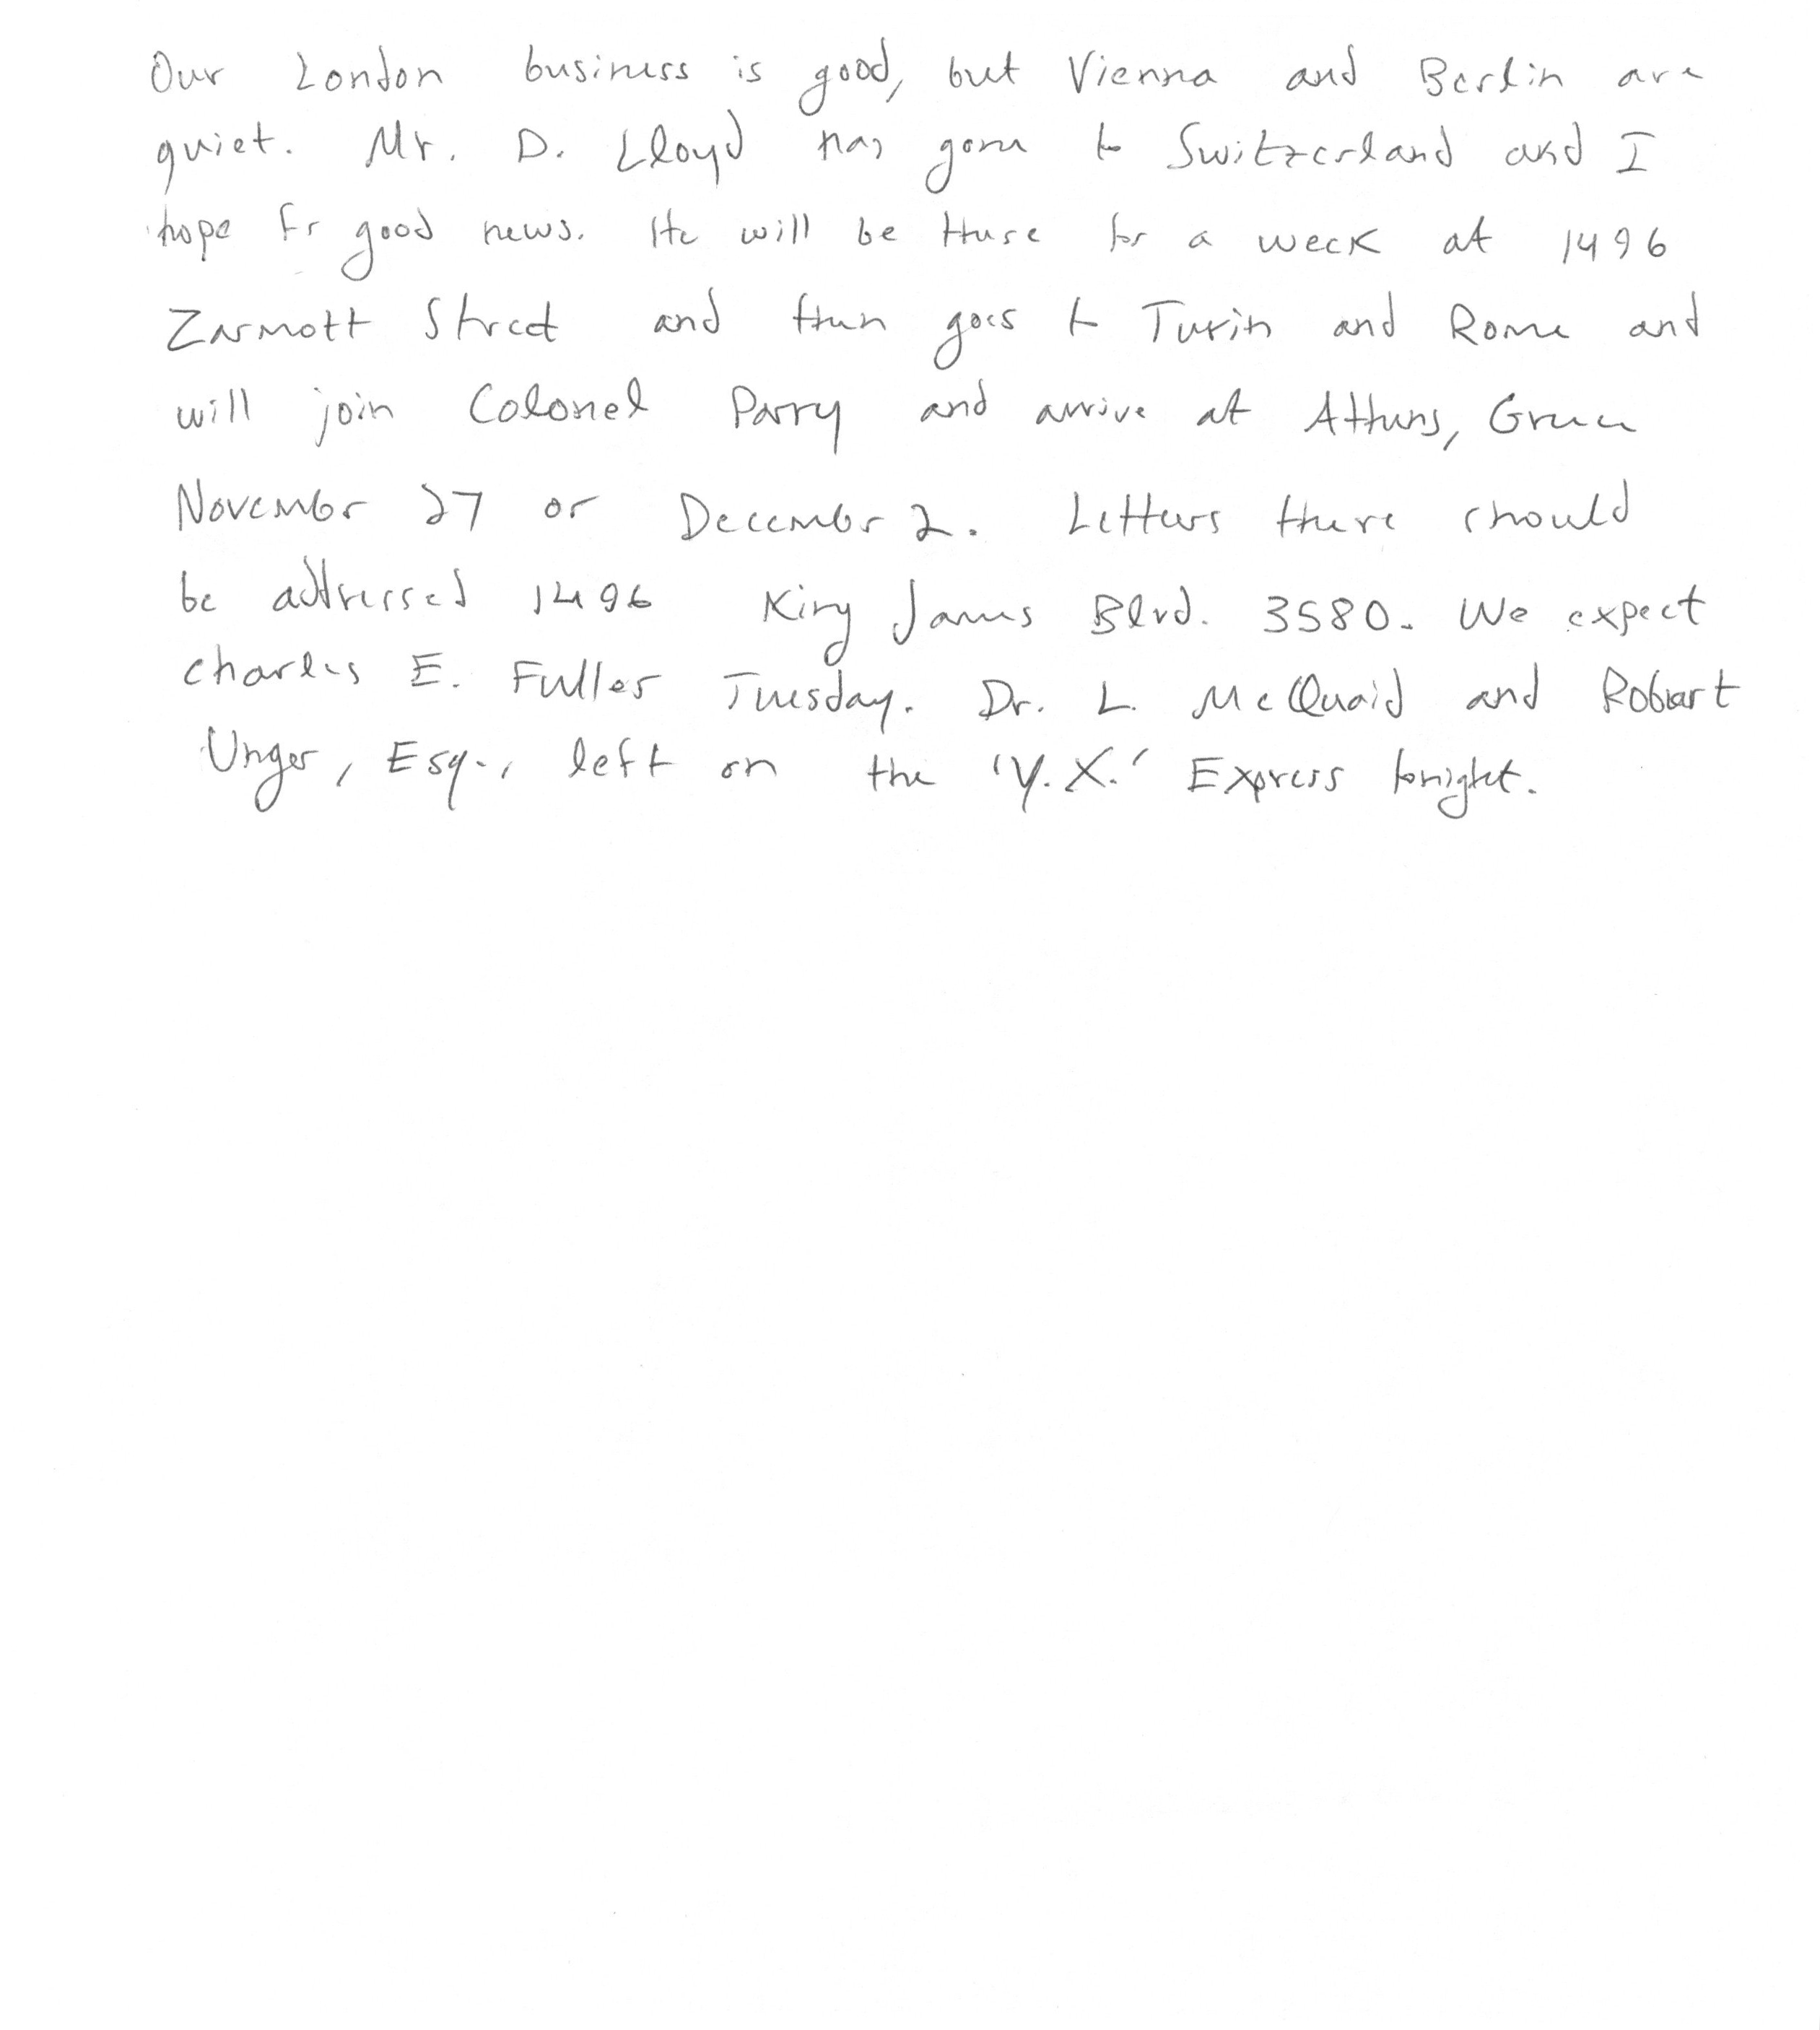 Our London business is good, but Vienna and Berlin are
quiet. Mr. D. Lloyd has gone to Switzerland and I
hope for good news. He will be there for a week at 1496
Zarmott Street and then goes to Turin and Rome and
will join Colonel Parry and arrive at Athens, Greece
November 27 or December 2. Letters there should
be addressed 1496 King James Blvd. 3580. We expect
Charles E. Fuller Tuesday. Dr. L. McQuaid and Robert
Unger, Esq., left on the 'Y.X.' Express tonight.